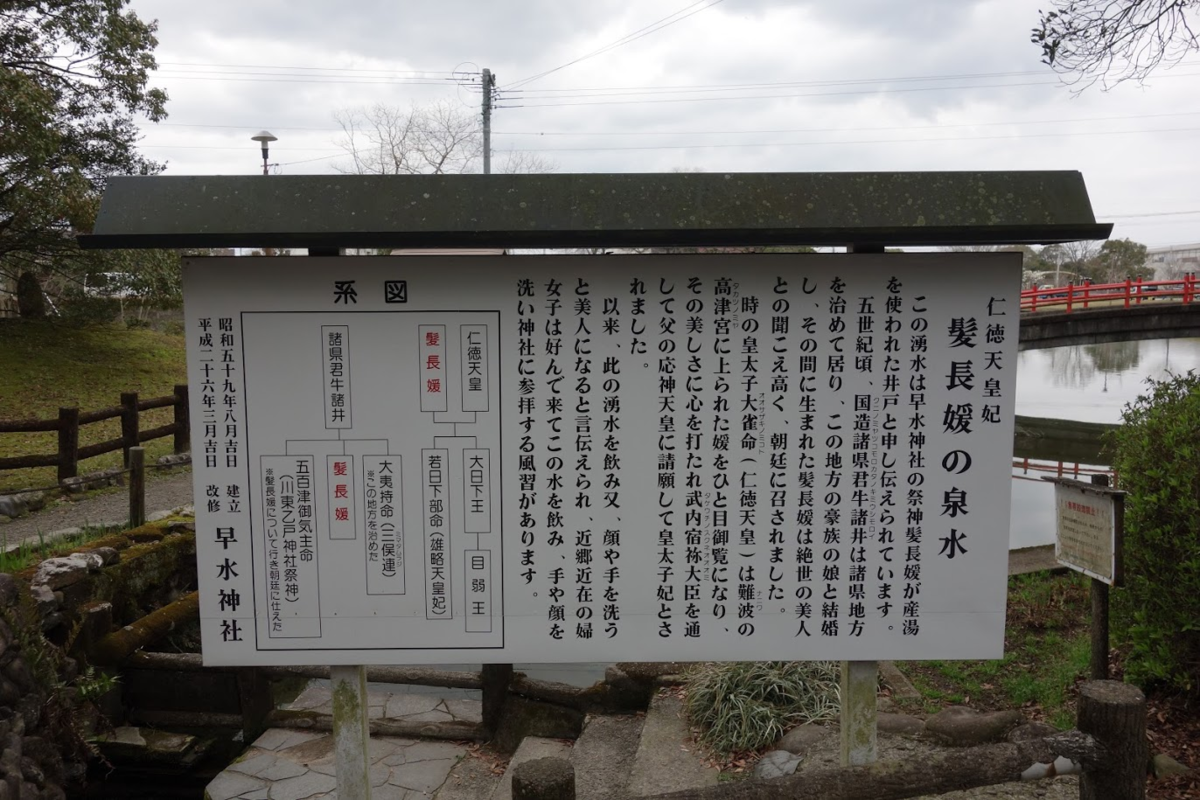 仁徳天皇妃
髪長媛の泉水
この湧水は早水神社の祭神髪長媛が産湯
を使われた井戸と申し伝えられています。
五世紀頃、国造諸県君牛諸井は諸県地方
を治めて居り、この地方の豪族の娘と結婚
し、その間に生まれた髪長媛は絶世の美人
との聞こえ高く、朝廷に召されました。
時の皇太子大雀命（仁徳天皇）は難波の
高津宮に上られた媛をひと目御覧になり、
その美しさに心を打たれ武内宿祢大臣を通
して父の応神天皇に請願して皇太子妃とさ
れました。
以来、此の湧水を飲み又、顔や手を洗う
と美人になると言伝えられ、近郷近在の婦
女子は好んで来てこの水を飲み、手や顔を
洗い神社に参拝する風習があります。
系図
仁徳天皇
髪長媛
大日下王
目弱王
若日下部命（雄略天皇妃）
諸県君牛諸井
大夷持命（三俣連）
※この地方を治めた
髪長媛
五百津御気主命
（川東乙戸神社祭神）
※髪長媛について行き朝廷に仕えた
昭和五十九年八月吉日 建立
平成二十六年三月吉日 改修
早水神社